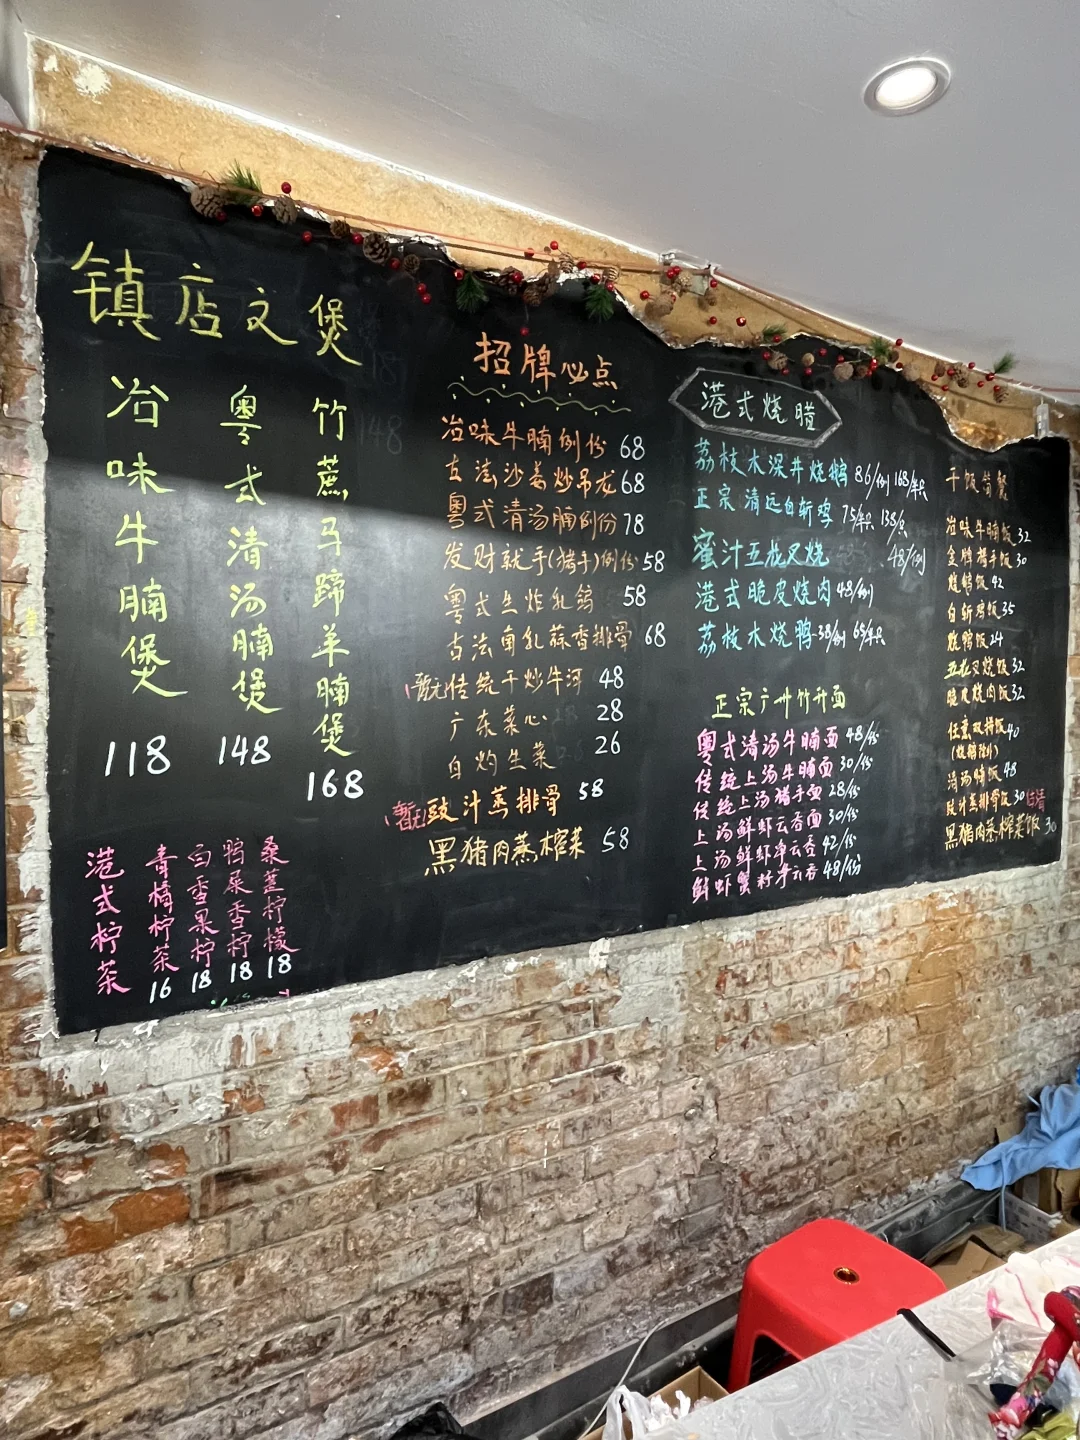 镇店之煲
冶味牛腩煲
118
粤式清汤腩煲
148
竹蔗马蹄羊腩煲
168
港式柠茶
青橘柠茶
16
白香果柠
18
鸭屎香柠
18
桑葚柠檬
18
招牌必点
冶味牛腩例份 68
古法沙姜炒吊龙 68
粤式清汤腩例份 78
发财就手(猪手)例份 58
粤式生炸乳鸽 58
古法南乳蒜香排骨 68
(暂无)传统干炒牛河 48
广东菜心 28
白灼生菜 26
(暂无)豉汁蒸排骨 58
黑猪肉蒸榨菜 58
港式烧腊
荔枝木深井烧鹅 86/例 168/半只
正宗清远白斩鸡 75/半只 138/只
蜜汁五花叉烧 48/例
港式脆皮烧肉 48/例
荔枝木烧鸭 38/例 65/半只
正宗广州竹升面
粤式清汤牛腩面 48/份
传统上汤牛腩面 30/份
传统上汤猪手面 28/份
上汤鲜虾云吞面 30/份
上汤鲜虾净云吞 42/份
鲜虾蟹籽净云吞 48/份
干饭简餐
冶味牛腩饭 32
金牌猪手饭 30
烧鹅饭 42
白斩鸡饭 35
烧鸭饭 24
五花叉烧饭 32
脆皮烧肉饭 32
任意双拼饭 40
(烧鹅除外)
清汤腩饭 48
豉汁蒸排骨饭 30 估清
黑猪肉蒸榨菜饭 30